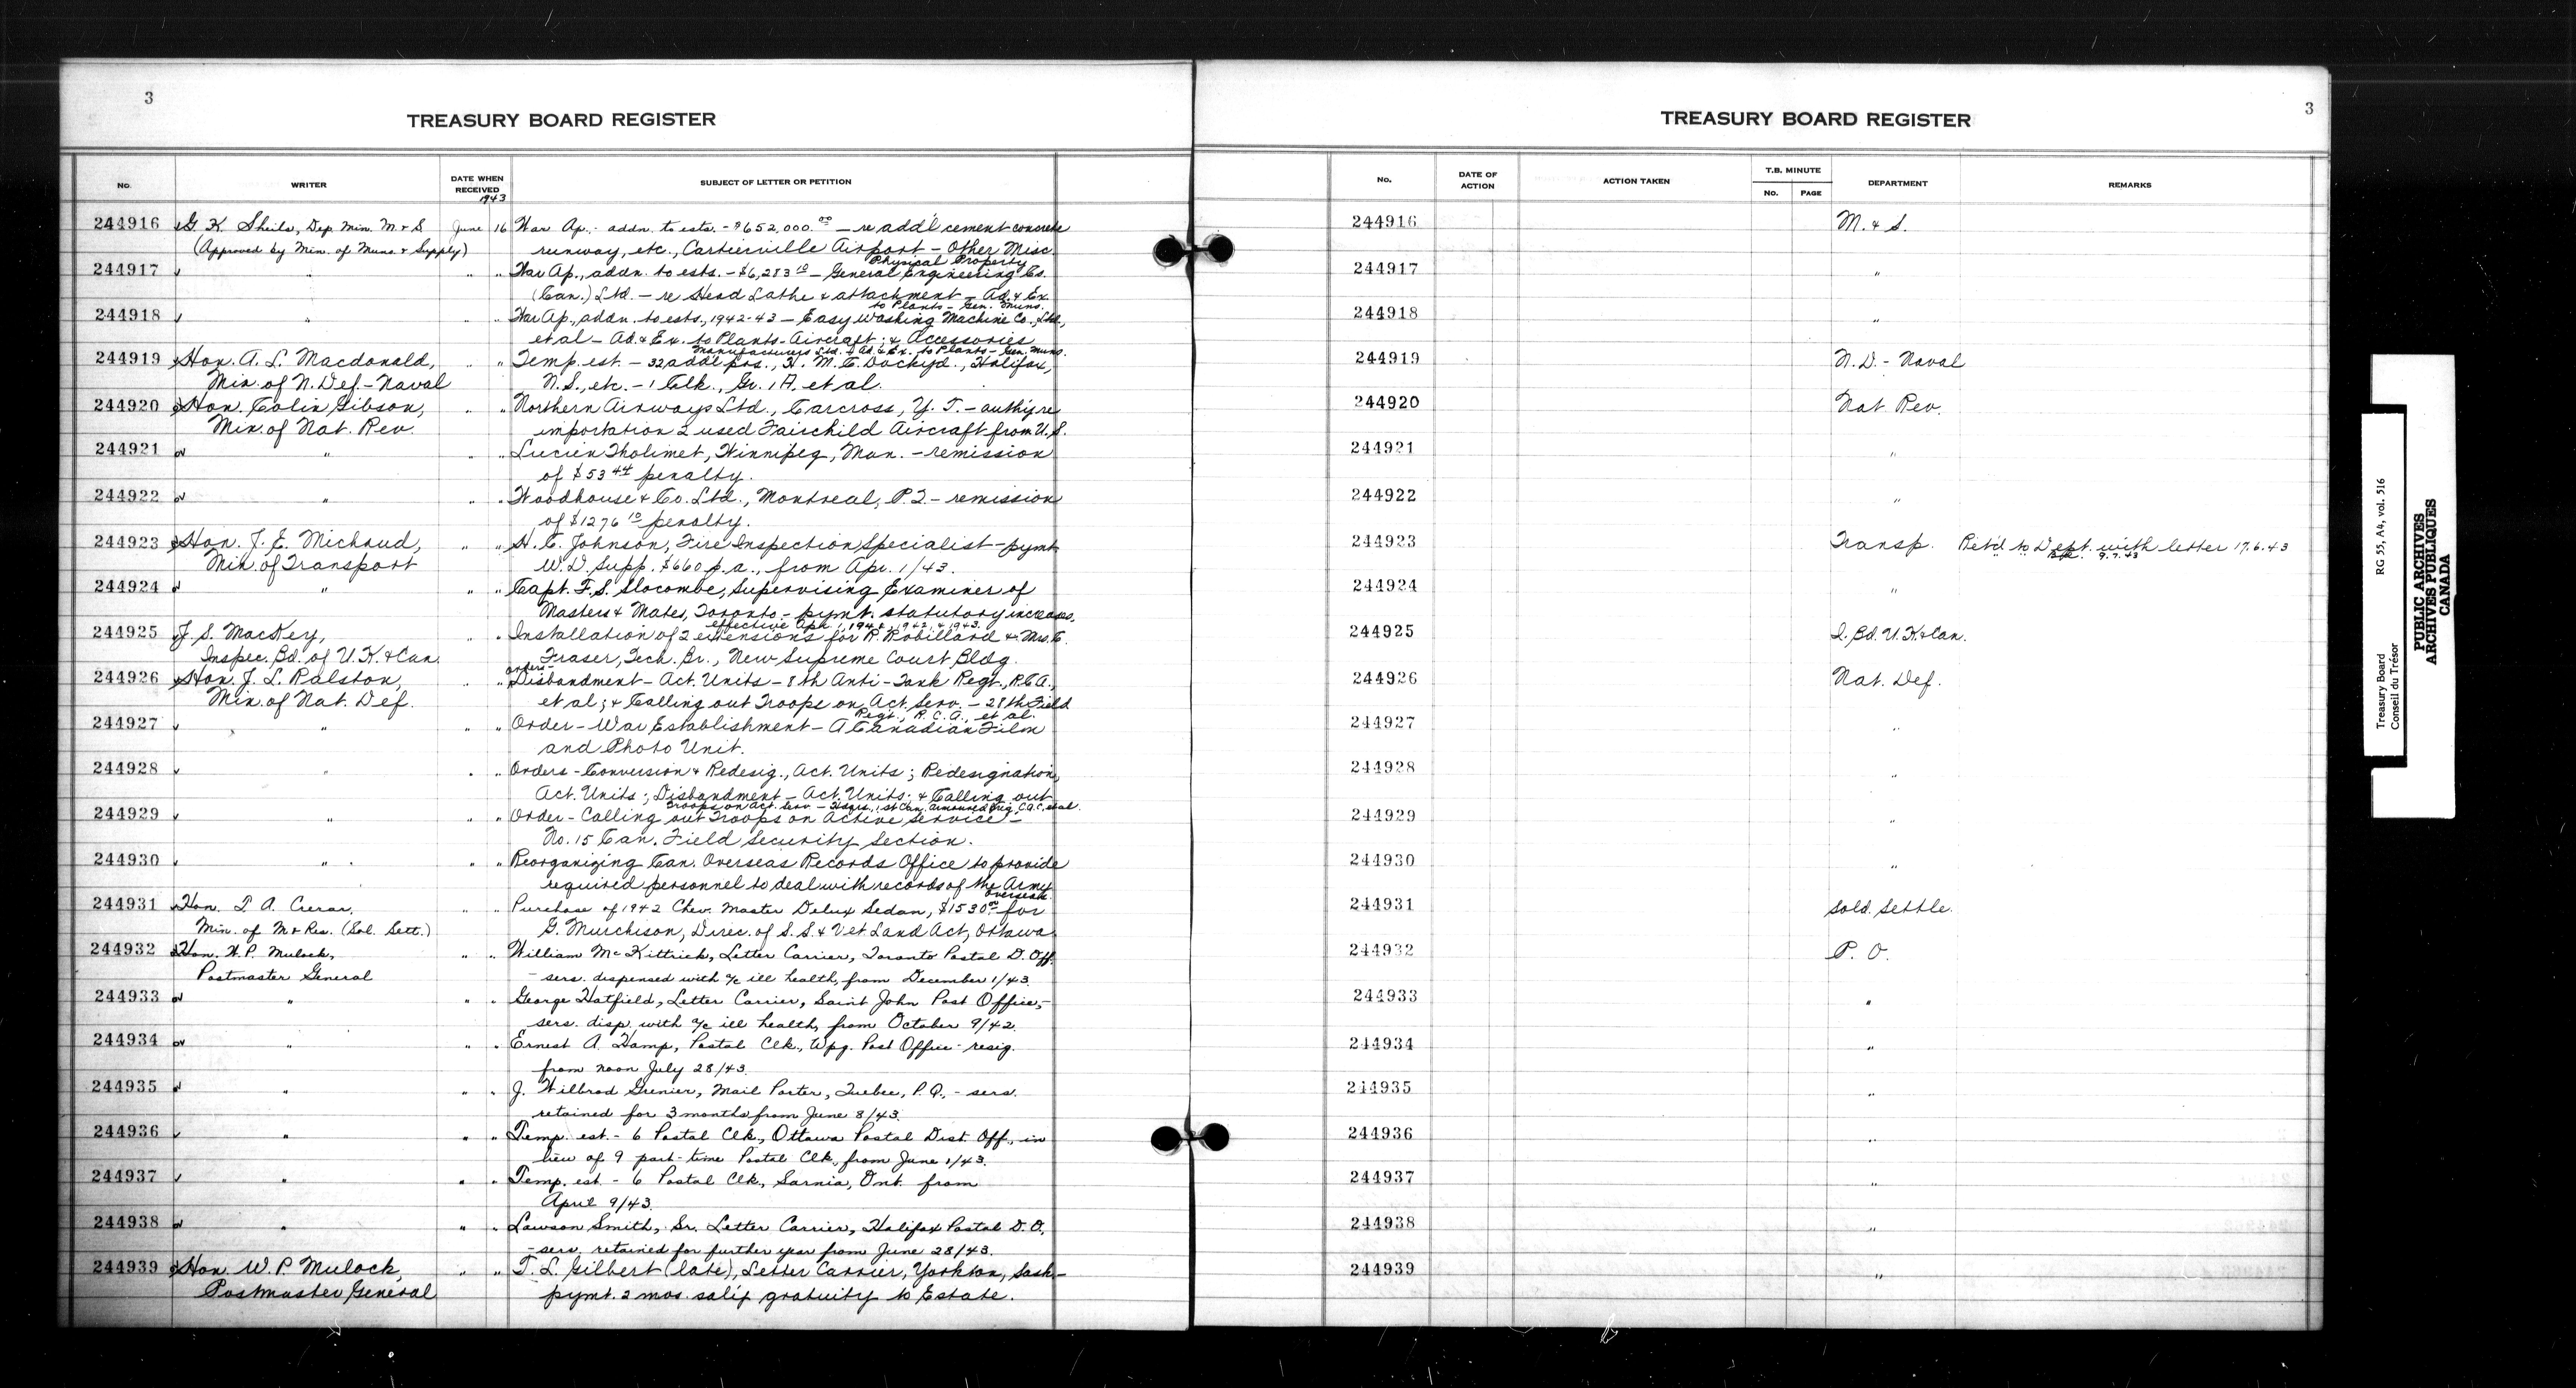 3
TREASURY BOARD REGISTER
No.
WRITER
DATE WHEN
RECEIVED
1943
SUBJECT OF LETTER OR PETITION
244916 G. K. Sheils, Dep. Min. M & S June 16 War Ap. - addn. to ests. - $652,000.00 — re add'l cement concrete
(Approved by Min. of Muns. & Supply) runway, etc., Cartierville Airport - Other Misc.
Physical Property
244917 " " " War Ap., addn. to ests. - $6,283 10 - General Engineering Co.
(Can.) Ltd. - re Head Lathe & attachment - Ad. & Ex.
to Plants - Gen. Muns.
244918 " " " War Ap., addn. to ests., 1942-43 - Easy Washing Machine Co., Ltd.,
et al - Ad. & Ex. to Plants - Aircraft; & Accessories
Manufacturers Ltd. - Ad. & Ex. to Plants - Gen. Muns.
244919 Hon. A. L. Macdonald, " " Temp. est. - 32 addl pos., H. M. C. Dockyd., Halifax,
Min. of N. Def. - Naval N.S., etc. - 1 Clk., Gr. 1A, et al.
244920 Hon. Colin Gibson, " " Northern Airways Ltd., Carcross, Y. T. - auth'y re
Min. of Nat. Rev. importation 2 used Fairchild Aircraft from U.S.
244921 " " " Lucien Tholimet, Winnipeg, Man. - remission
of $53 44 penalty.
244922 " " " Woodhouse & Co. Ltd., Montreal, P.Q. - remission
of $1276 10 penalty.
244923 Hon. J. E. Michaud, " " H. C. Johnson, Fire Inspection Specialist - pymt
Min. of Transport W. D. Supp. $660 p.a., from Apr. 1/43.
244924 " " " Capt. F. S. Slocombe, Supervising Examiner of
Masters & Mates, Toronto - pymt. statutory increases,
effective Apr. 1, 1941, 1942, & 1943.
244925 J. S. Mackey, " " Installation of 2 extensions for R. Robillard & Mrs. C.
Inspec. Bd. of U. K. & Can. Fraser, Tech. Br., New Supreme Court Bldg.
Orders -
244926 Hon. J. L. Ralston, " " Disbandment - Act. Units - 8th Anti-Tank Regt., R.C.A.,
Min. of Nat. Def. et al; & Calling out Troops on Act. Serv. - 28th Field
Regt., R. C. A., et al.
244927 " " " Order - War Establishment - A Canadian Film
and Photo Unit.
244928 " " " Orders - Conversion & Redesig., Act. Units; Redesignation,
Act. Units; Disbandment - Act. Units; & Calling out
Troops on Act. Serv. - Hqrs., 1st Can. Armoured Brig. C.A.C. et al.
244929 " " " Order - Calling out Troops on Active Service -
No. 15 Can. Field Security Section.
244930 " " " Reorganizing Can. Overseas Records Office to provide
required personnel to deal with records of the Army
overseas.
244931 Hon. T. A. Crerar, " " Purchase of 1942 Chev. Master Delux Sedan, $1530 00 for
Min. of M & Res. (Sol. Sett.) G. Murchison, Direc. of S. S. & Vet. Land Act, Ottawa
244932 Hon. W. P. Mulock, " " William McKittrick, Letter Carrier, Toronto Postal D. Off.
Postmaster General - sers. dispensed with a/c ill health, from December 1/43.
244933 " " " George Hatfield, Letter Carrier, Saint John Post Office, -
sers. disp. with a/c ill health, from October 9/42.
244934 " " " Ernest A. Hamp, Postal Clk., Wpg. Post Office - resig.
from noon July 28/43.
244935 " " " J. Wilbrod Grenier, Mail Porter, Quebec, P.Q., - sers.
retained for 3 months from June 8/43.
244936 " " " Temp. est. - 6 Postal Clk., Ottawa Postal Dist. Off., in
lieu of 9 part-time Postal Clk., from June 1/43.
244937 " " " Temp. est. - 6 Postal Clk., Sarnia, Ont. from
April 9/43.
244938 " " " Lawson Smith, Sr. Letter Carrier, Halifax Postal D. O.,
- sers. retained for further year from June 28/43.
244939 Hon. W. P. Mulock, " " T. L. Gilbert (late), Letter Carrier, Yorkton, Sask -
Postmaster General pymt. 2 mos. sal'y gratuity to Estate.
3
TREASURY BOARD REGISTER
No.
DATE OF
ACTION
ACTION TAKEN
T.B. MINUTE
No. PAGE
DEPARTMENT
REMARKS
244916 M. & S.
244917 "
244918 "
244919 N. D. - Naval
244920 Nat. Rev.
244921 "
244922 "
244923 Transp. Ret'd to Dept. with letter 17.6.43
" " 9.7.43
244924 "
244925 I. Bd. U. K & Can.
244926 Nat. Def.
244927 "
244928 "
244929 "
244930 "
244931 Sold. Settle.
244932 P. O.
244933 "
244934 "
244935 "
244936 "
244937 "
244938 "
244939 "
Treasury Board RG 55, A4, vol. 516
Conseil du Trésor
PUBLIC ARCHIVES
ARCHIVES PUBLIQUES
CANADA